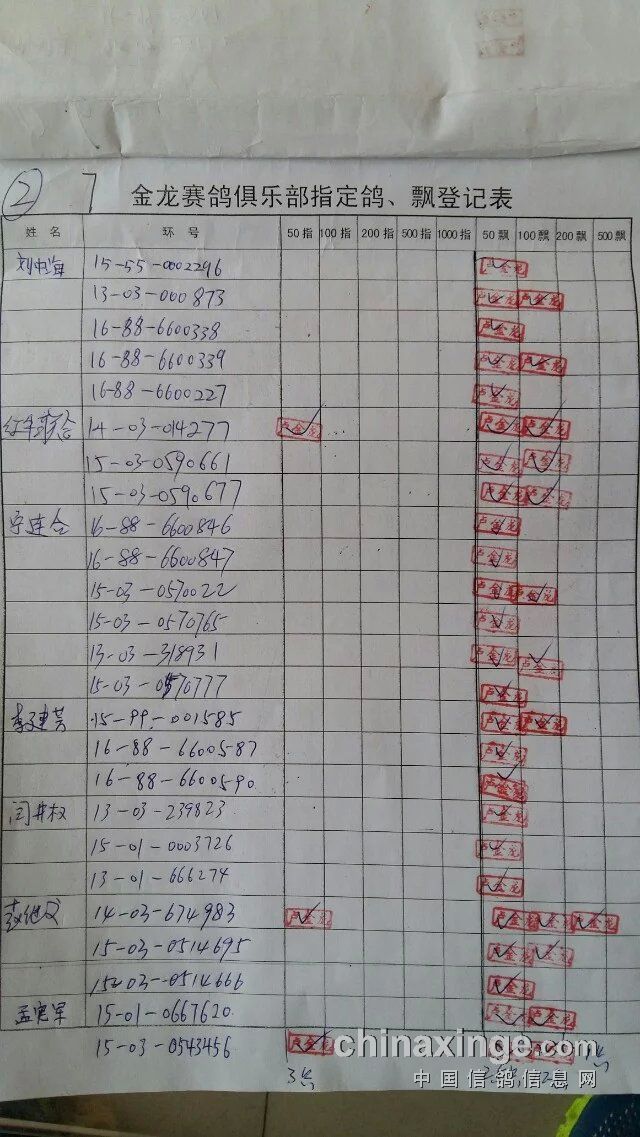 ② 7 金龙赛鸽俱乐部指定鸽、飘登记表
姓 名 环 号 50指 100指 200指 500指 1000指 50飘 100飘 200飘 500飘
15-55-0002296 卢金龙
13-03-000873 卢金龙 卢金龙
16-88-6600338 卢金龙
16-88-6600339 卢金龙 卢金龙
16-88-6600227 卢金龙
14-03-014277 卢金龙 卢金龙 卢金龙
15-03-0590661 卢金龙 卢金龙
15-03-0590677 卢金龙 卢金龙
16-88-6600846 卢金龙
16-88-6600847 卢金龙
15-03-0570022 卢金龙 卢金龙
15-03-0570765 卢金龙
13-03-318931 卢金龙 卢金龙
15-03-0570777 卢金龙
15-99-001585 卢金龙 卢金龙
16-88-6600587 卢金龙
16-88-6600590 卢金龙
闫井权 13-03-239823 卢金龙
15-01-0003726 卢金龙
13-01-666274 卢金龙
14-03-674983 卢金龙 卢金龙 卢金龙 卢金龙
15-03-0514695 卢金龙 卢金龙
15-03-0514666 卢金龙
孟宪军 15-01-0667620 卢金龙 卢金龙
15-03-0543456 卢金龙 卢金龙 卢金龙
chinaxinge.com
中国信鸽信息网